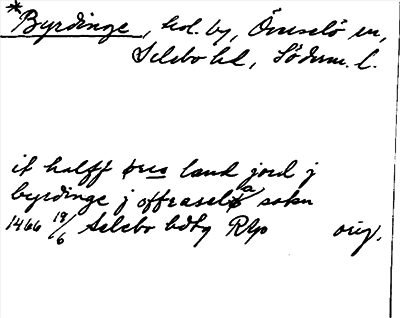 *Byrdinge, led. by, Överselö sn,
Selebo hd, Söderm. l.
it halfft øres land jord j
byrdinge j offraseløa sokn
1466 18/6 Selebo hdtg RAp orig.